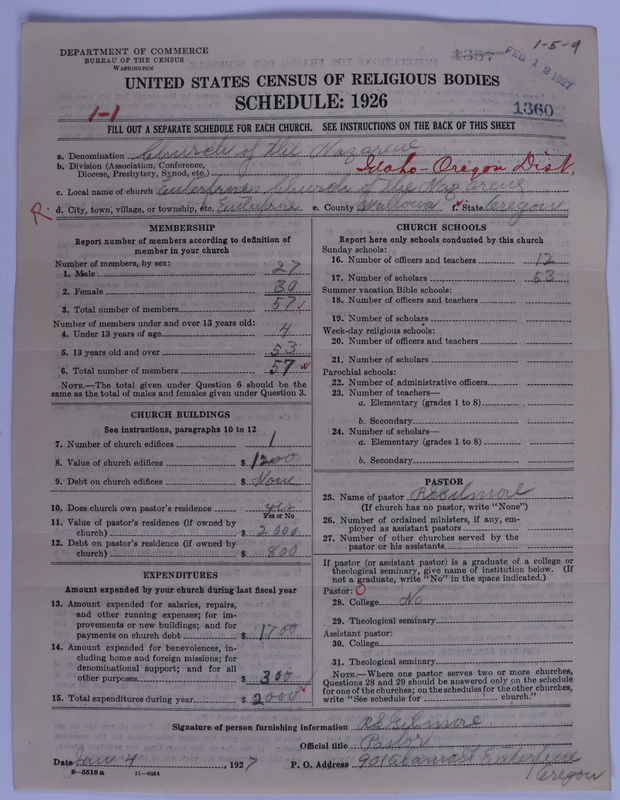 DEPARTMENT OF COMMERCE
BUREAU OF THE CENSUS
WASHINGTON
1357
FEB 12 1927
1-5-9
UNITED STATES CENSUS OF RELIGIOUS BODIES
SCHEDULE: 1926
1-1
1360
FILL OUT A SEPARATE SCHEDULE FOR EACH CHURCH. SEE INSTRUCTIONS ON THE BACK OF THIS SHEET
a. Denomination Church of the Nazarene
b. Division (Association, Conference, Diocese, Presbytery, Synod, etc.) Idaho-Oregon Dist.
c. Local name of church Enterprise Church of the Nazarene
R. d. City, town, village, or township, etc. Enterprise e. County Wallowa f. State Oregon
MEMBERSHIP
Report number of members according to definition of
member in your church
Number of members, by sex:
1. Male 27
2. Female 30
3. Total number of members 57
Number of members under and over 13 years old:
4. Under 13 years of age 4
5. 13 years old and over 53
6. Total number of members 57
NOTE.—The total given under Question 6 should be the
same as the total of males and females given under Question 3.
CHURCH BUILDINGS
See instructions, paragraphs 10 to 12
7. Number of church edifices 1
8. Value of church edifices $ 1200
9. Debt on church edifices $ None
10. Does church own pastor's residence yes
Yes or No
11. Value of pastor's residence (if owned by
church) $ 2000
12. Debt on pastor's residence (if owned by
church) $ 800
EXPENDITURES
Amount expended by your church during last fiscal year
13. Amount expended for salaries, repairs,
and other running expenses; for im-
provements or new buildings; and for
payments on church debt $ 1700
14. Amount expended for benevolences, in-
cluding home and foreign missions; for
denominational support; and for all
other purposes $ 300
15. Total expenditures during year $ 2000
CHURCH SCHOOLS
Report here only schools conducted by this church
Sunday schools:
16. Number of officers and teachers 12
17. Number of scholars 53
Summer vacation Bible schools:
18. Number of officers and teachers
19. Number of scholars
Week-day religious schools:
20. Number of officers and teachers
21. Number of scholars
Parochial schools:
22. Number of administrative officers
23. Number of teachers—
a. Elementary (grades 1 to 8)
b. Secondary
24. Number of scholars—
a. Elementary (grades 1 to 8)
b. Secondary
PASTOR
25. Name of pastor R E Gilmore
(If church has no pastor, write "None")
26. Number of ordained ministers, if any, em-
ployed as assistant pastors
27. Number of other churches served by the
pastor or his assistants
If pastor (or assistant pastor) is a graduate of a college or
theological seminary, give name of institution below. (If
not a graduate, write "No" in the space indicated.)
Pastor:
28. College No
29. Theological seminary
Assistant pastor:
30. College
31. Theological seminary
NOTE.—Where one pastor serves two or more churches,
Questions 28 and 29 should be answered only on the schedule
for one of the churches; on the schedules for the other churches,
write "See schedule for church."
Signature of person furnishing information R E Gilmore
Official title Pastor
Date Jan 4, 1927 P. O. Address 901 Enterprise
Oregon
8—5518a 11—9084